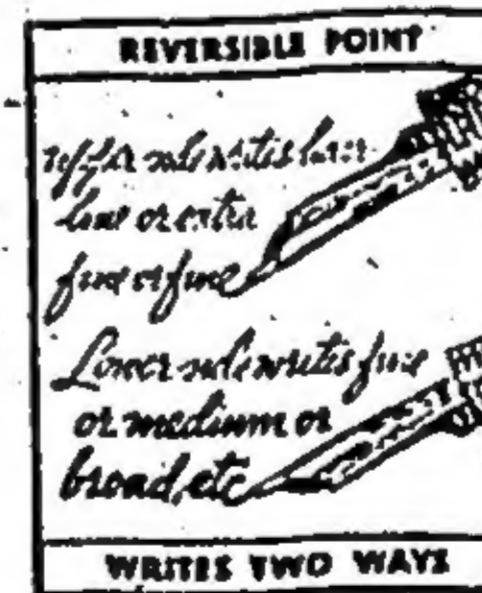 REVERSIBLE POINT
upper side writes hair
line or extra
fine or fine
Lower side writes fine
or medium or
broad, etc
WRITES TWO WAYS